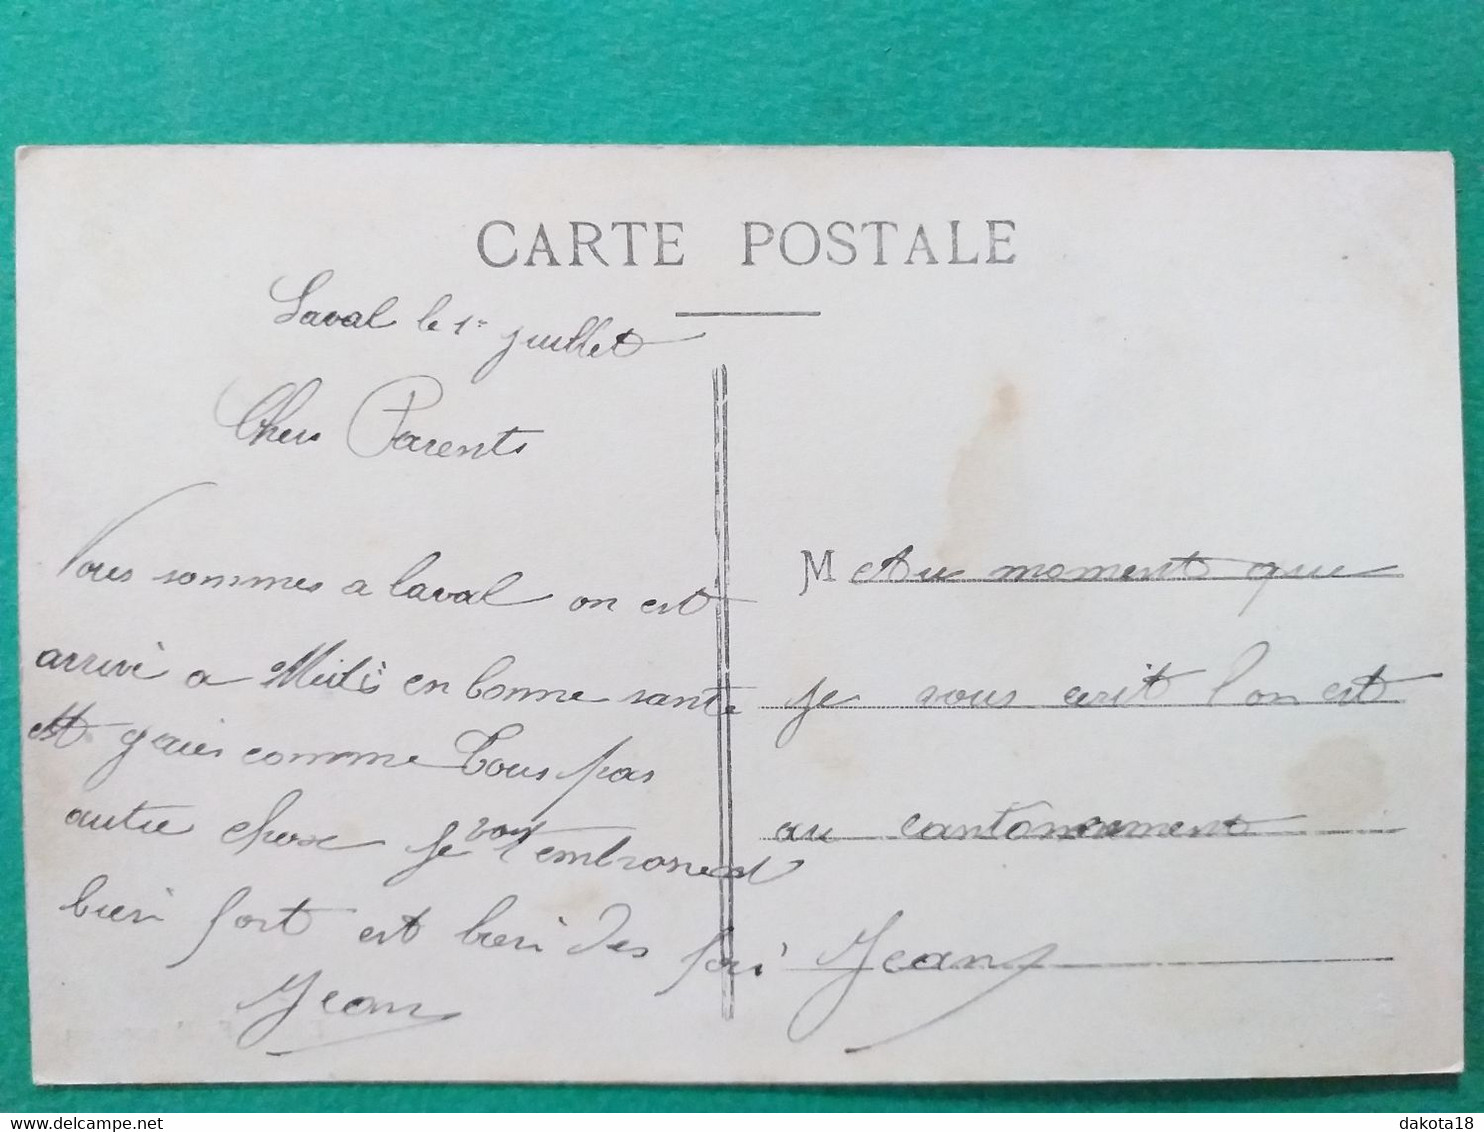 CARTE POSTALE
Laval le 1er juillet
Chers Parents
Nous sommes a laval on est
arrivé a Midi en bonne santé
et gaies comme Tous pas
autre chose je vous embrasse
bien fort est bien des foi
Jean
M Au moment que
je vous ecrit l'on est
au cantonnement
Jean
dakota18